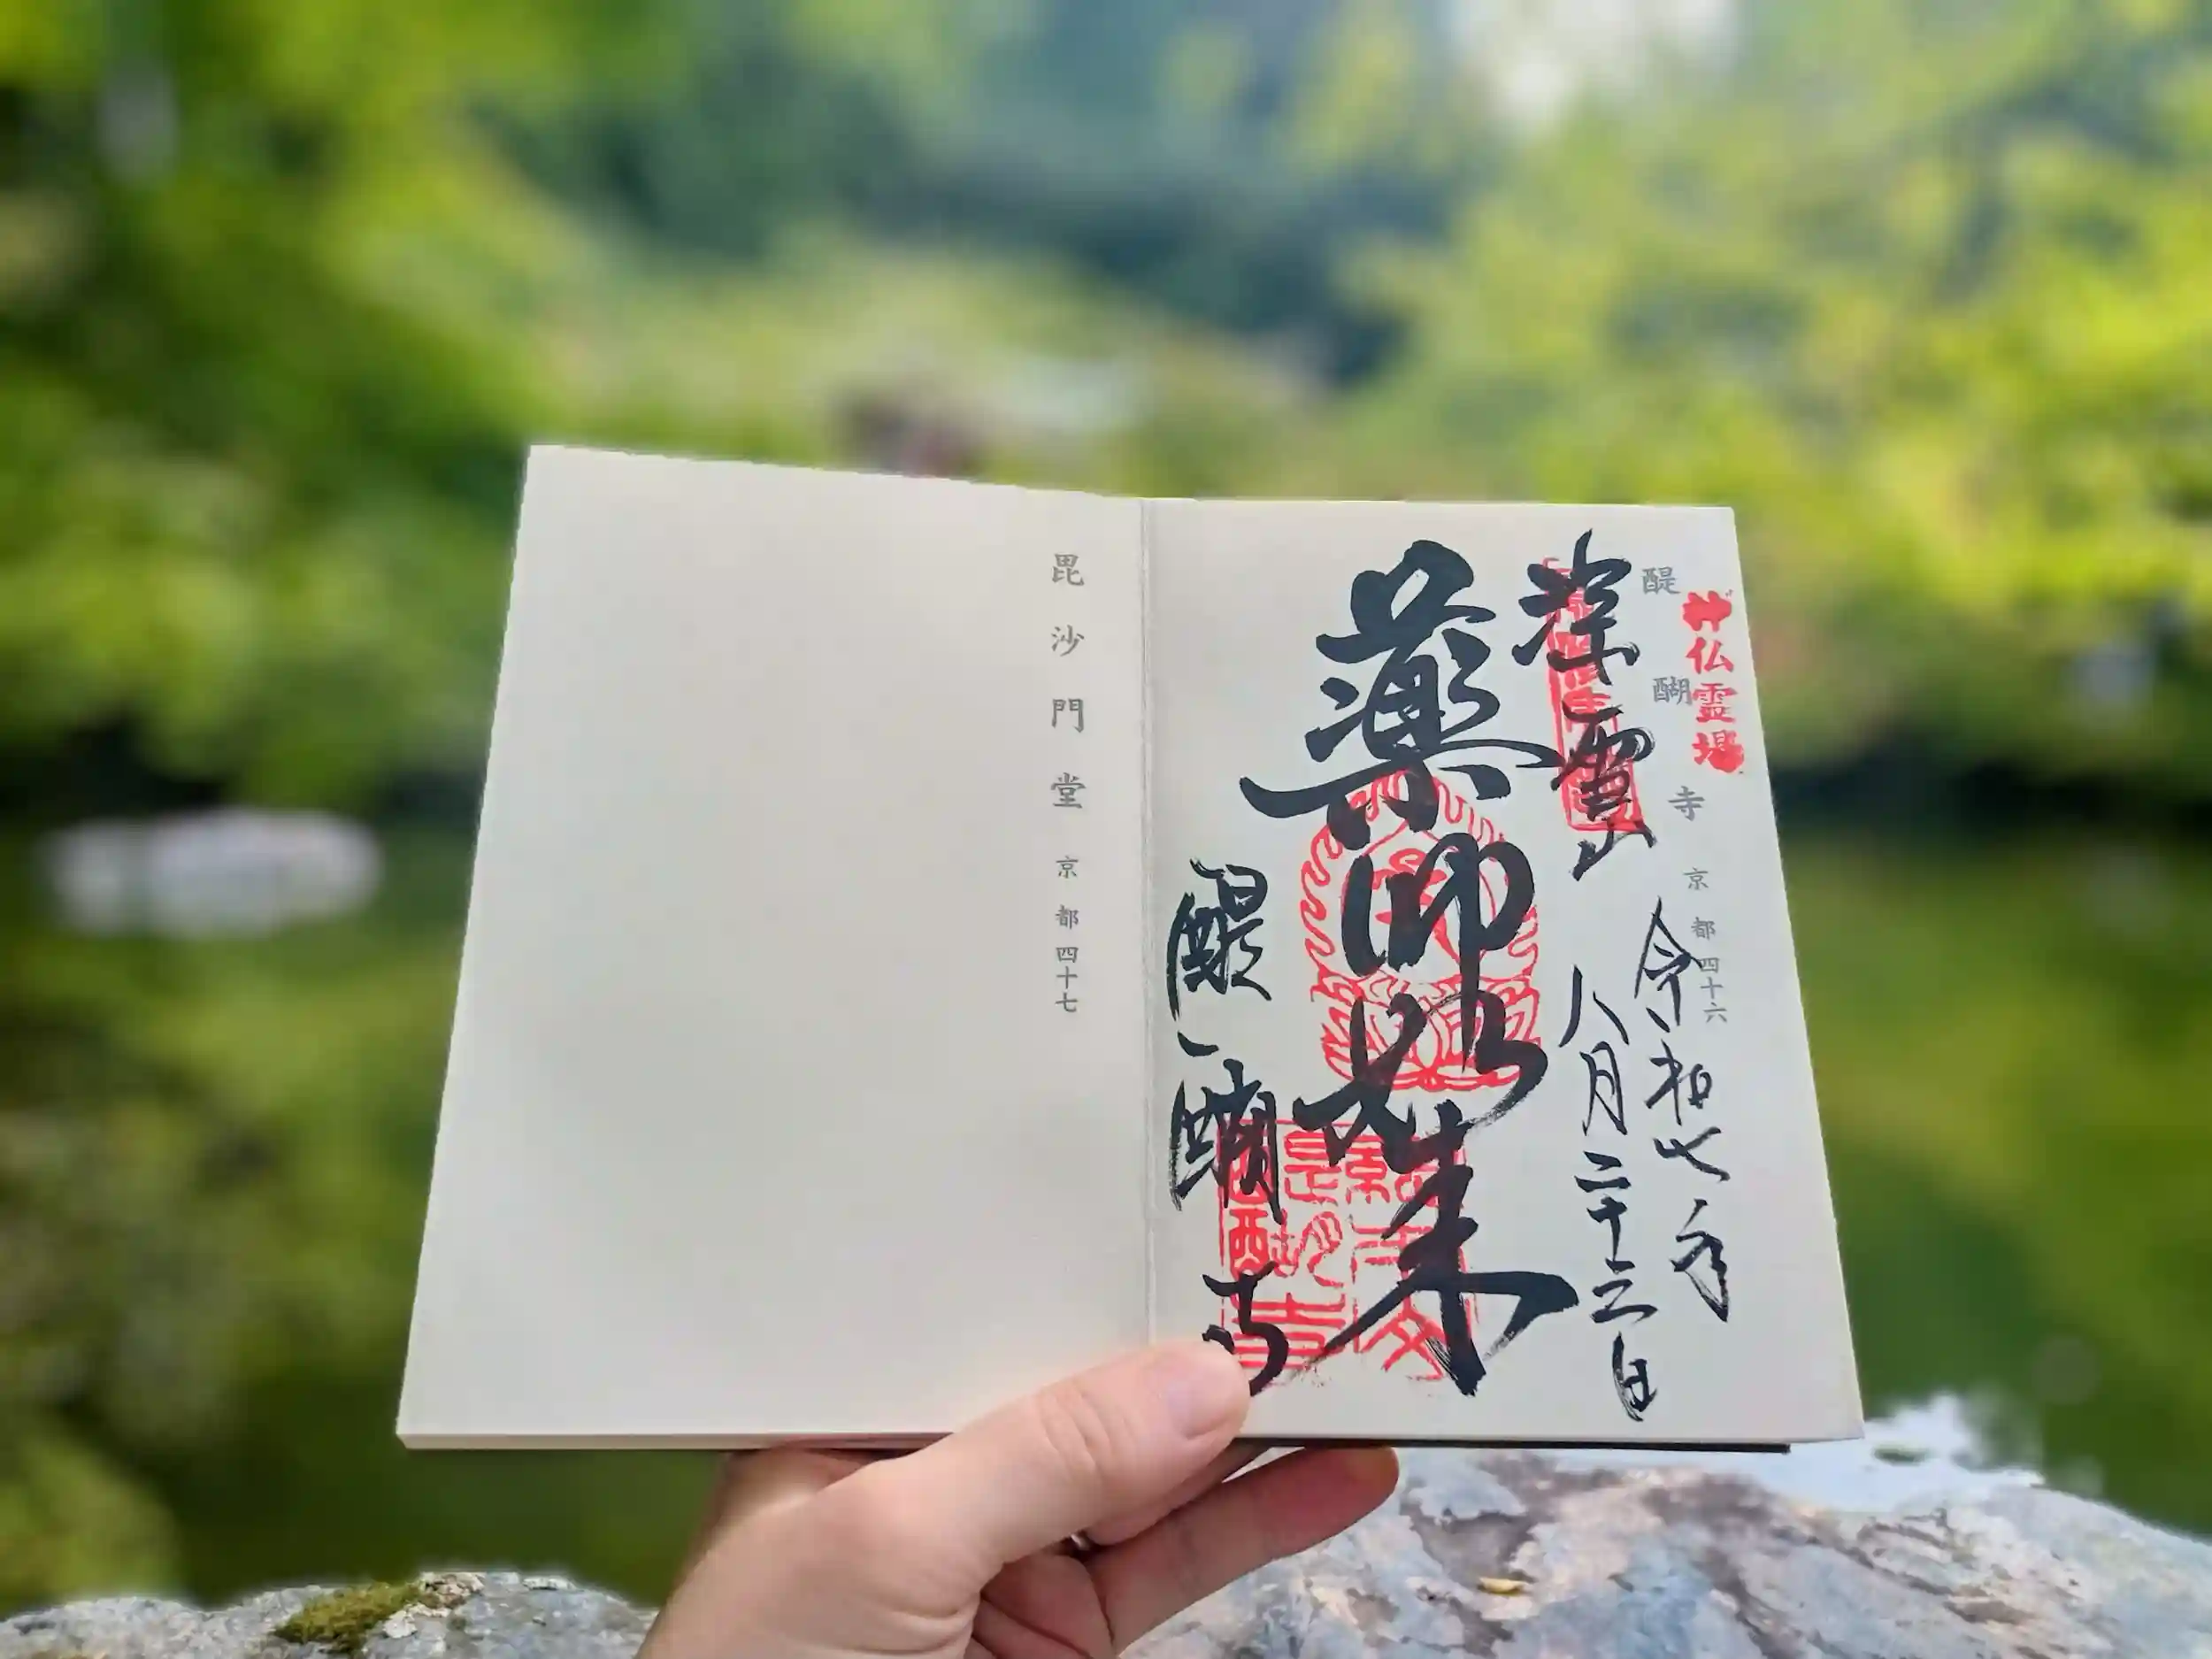 神仏霊場
醍醐寺 京都四十六
令和七年
八月二十三日
深雪山
薬師如来
醍醐寺
毘沙門堂 京都四十七